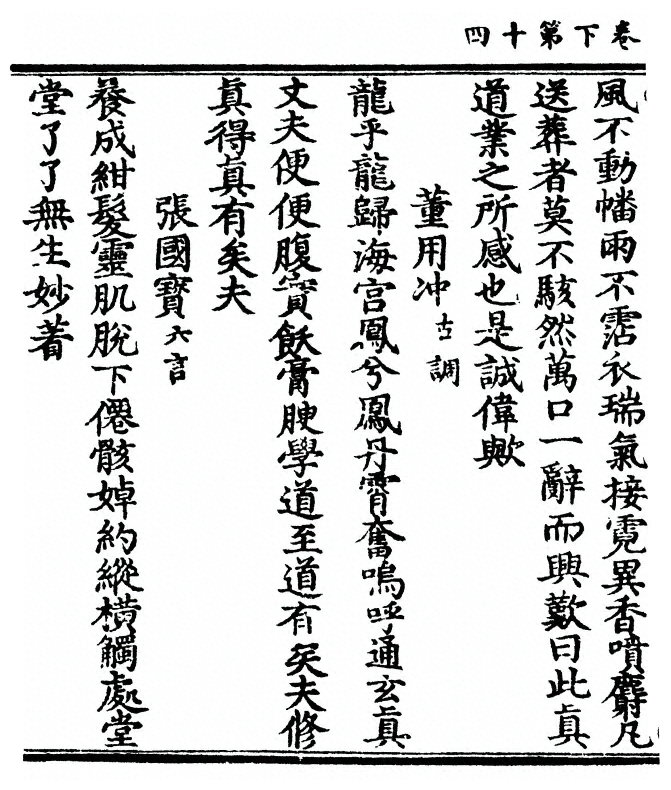 卷下第十四
風不動幡雨不霑衣瑞氣接霓異香噴麝凡
送葬者莫不駭然萬口一辭而興歎曰此真
道業之所感也是誠偉歟
董用冲古調
龍乎龍歸海宮鳳兮鳳丹霄奮嗚呼通玄真
丈夫便便腹實飫膏腴學道至道有矣夫修
真得真有矣夫
張國寶六言
養成紺髮靈肌脫下僊骸婥約縱橫觸處堂
堂了了無生妙着